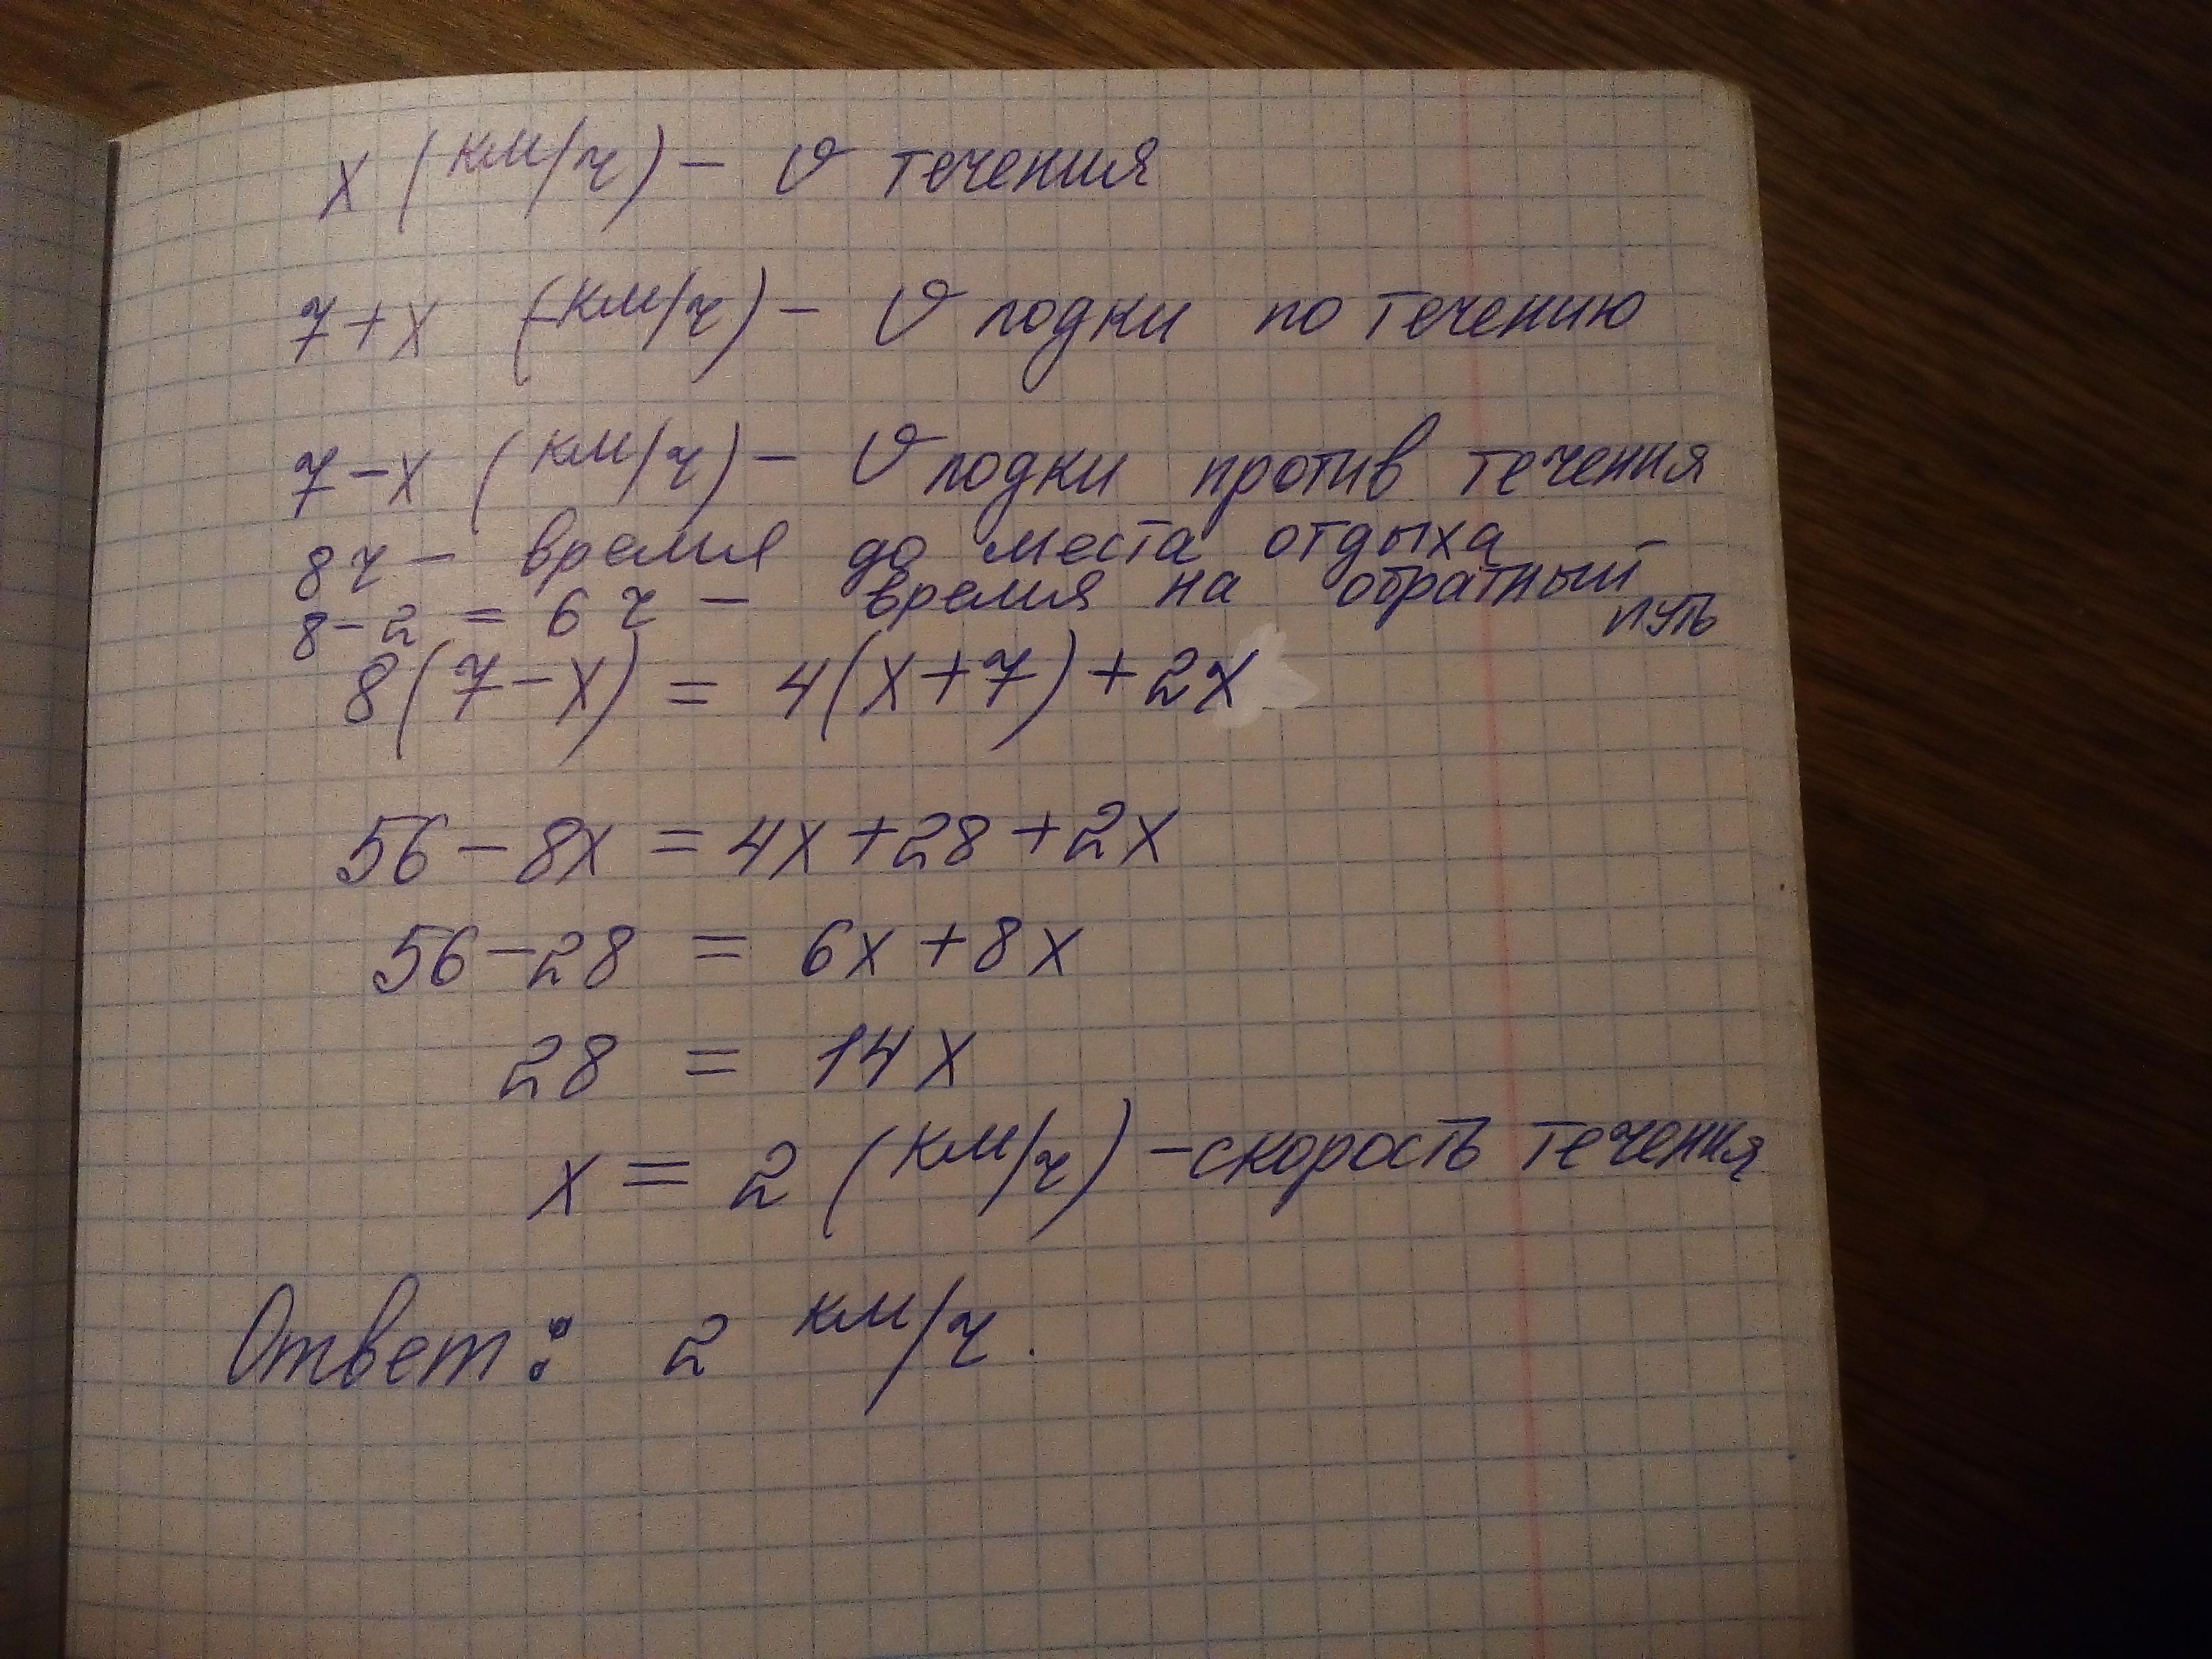 x (км/ч) - v течения
7+x (км/ч) - v лодки по течению
7-x (км/ч) - v лодки против течения
8 ч - время до места отдыха
8-2 = 6 ч - время на обратный путь
8(7-x) = 4(x+7)+2x
56-8x = 4x+28+2x
56-28 = 6x+8x
28 = 14x
x = 2 (км/ч) - скорость течения
Ответ: 2 км/ч.